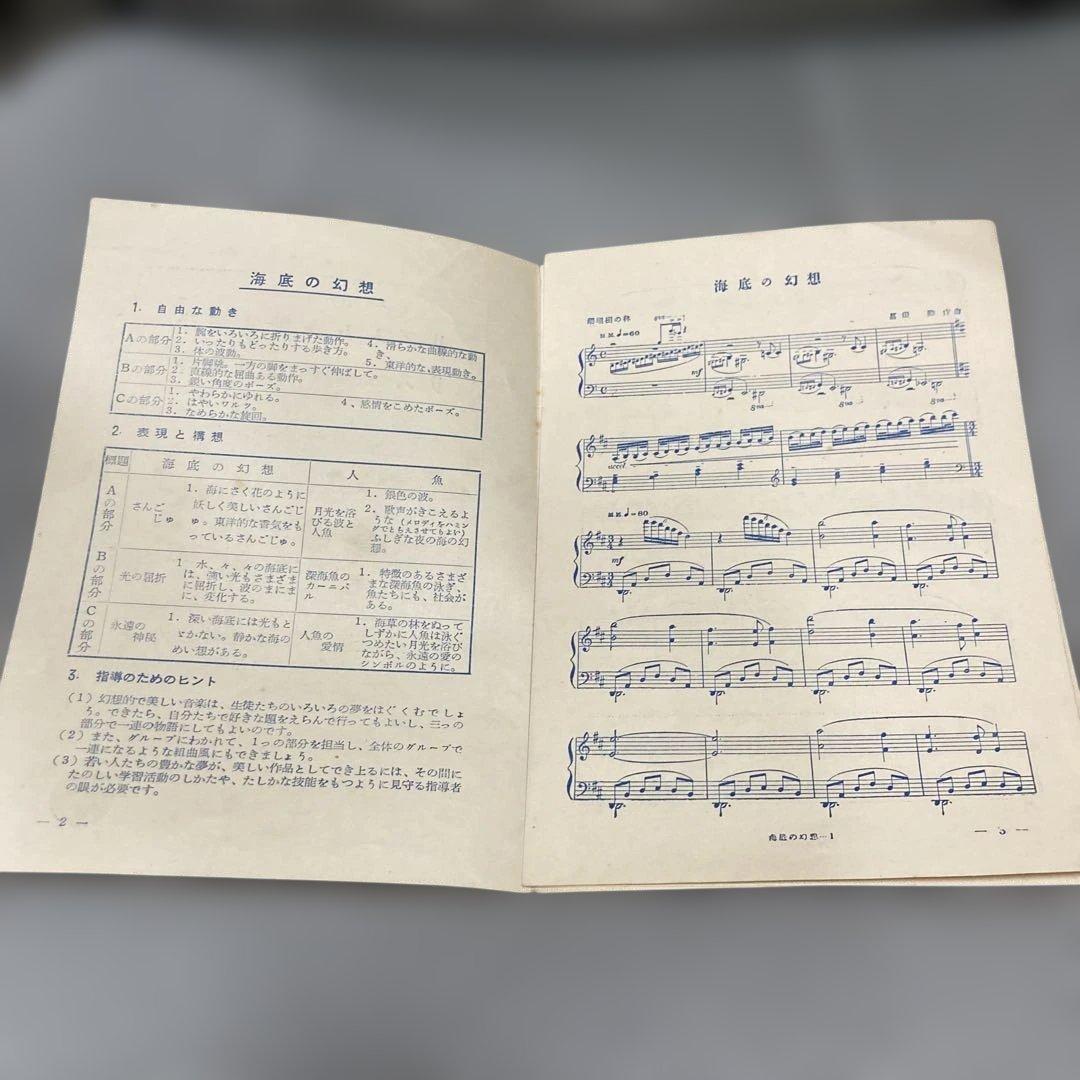 海底の幻想
1. 自由な動き
Aの部分
1. 腕をいろいろに折りまげた動作。
2. いったりもどったりする歩き方。
3. 体の波動。
4. 滑らかな曲線的な動
き。
5. 東洋的な、表現動き。
Bの部分
1. 片脚跳。一方の脚をまっすぐ伸ばして。
2. 直線的な屈曲ある動作。
3. 鋭い角度のポーズ。
Cの部分
1. やわらかにゆれる。
2. はやいワルツ。
3. なめらかな旋回。
4. 感情をこめたポーズ。
2. 表現と構想
標題
海底の幻想
人魚
Aの部分
さんご
じゅ
1. 海にさく花のように
妖しく美しいさんごじ
ゅ。東洋的な香気をも
っているさんごじゅ。
月光を浴
びる波と
人魚
1. 銀色の波。
2. 歌声がきこえるよ
うな(メロディをハミン
グでともらえさせてもよい)
ふしぎな夜の海の幻
想。
Bの部分
光の屈折
1. 水、々、々の海底に
は、強い光もさまざま
に屈折し、波のまにま
に、変化する。
深海魚の
カーニバ
ル
1. 特徴のあるさまざ
まな深海魚の泳ぎ、
魚たちにも、社会が
ある。
Cの部分
永遠の
神秘
1. 深い海底には光もと
どかない。静かな海の
めい想がある。
人魚の
愛情
1. 海草の林をぬって
しずかに人魚は泳ぐ
つめたい月光を浴び
ながら、永遠の愛の
シンボルのように。
3. 指導のためのヒント
(1) 幻想的で美しい音楽は、生徒たちのいろいろの夢をはぐくむでしょ
う。できたら、自分たちで好きな題をえらんで行ってもよいし、三つの
部分で一連の物語にしてもよいのです。
(2) また、グループにわかれて、1つの部分を担当し、全体のグループで
一連になるような組曲風にもできましょう。
(3) 若い人たちの豊かな夢が、美しい作品としてでき上るには、その間に
たのしい学習活動のしかたや、たしかな技能をもつように見守る指導者
の眼が必要です。
— 2 —
海底の幻想
珊瑚樹の林
冨田 勲 作曲
M.M.♩=60
8va
mf
sf
8va
8va
accel.
M.M.♩=60
mf
海底の幻想…1
— 3 —